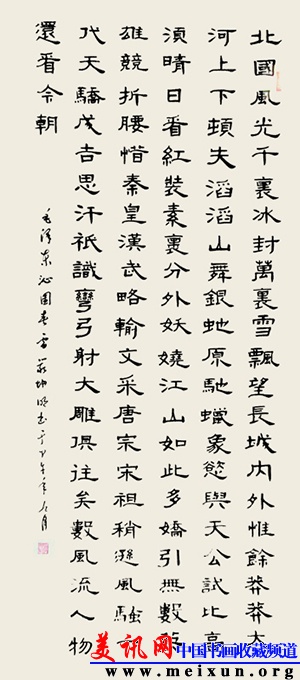 北國風光千裏冰封萬裏雪飄望長城内外惟餘莽莽大
河上下頓失滔滔山舞銀蛇原馳蠟象慾與天公試比高
須晴日看紅裝素裏分外妖嬈江山如此多嬌引無數英
雄競折腰惜秦皇漢武略輸文采唐宗宋祖稍遜風騷一
代天驕成吉思汗祇識彎弓射大雕俱往矣數風流人物
還看今朝
毛澤東沁園春雪
美讯网 中国书画收藏频道
www.meixun.org